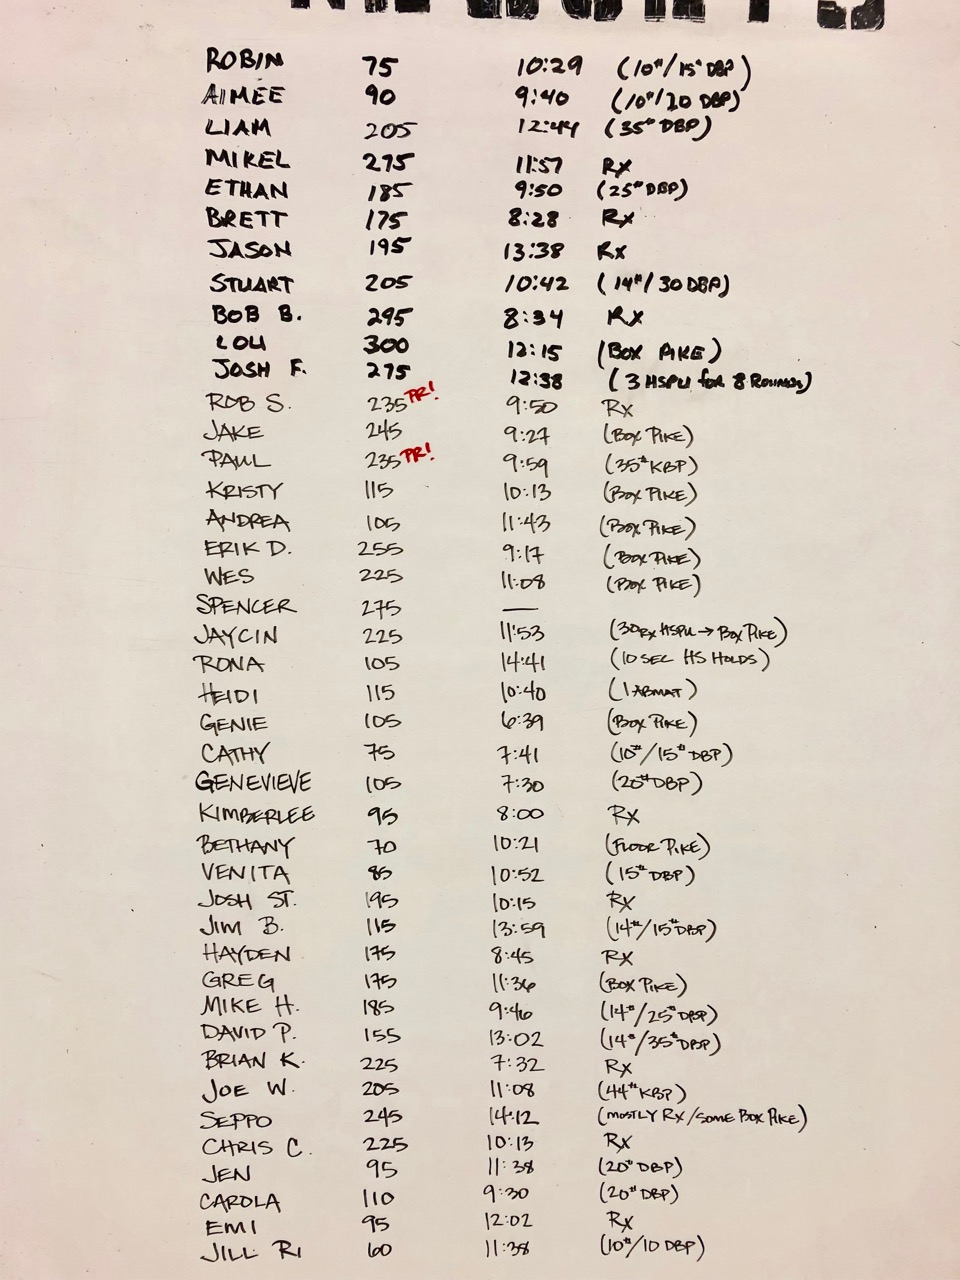 ROBIN 75 10:29 (10#/15# DBP)
AIMEE 90 9:40 (10#/20 DBP)
LIAM 205 12:44 (35# DBP)
MIKEL 275 11:57 Rx
ETHAN 185 9:50 (25# DBP)
BRETT 175 8:28 Rx
JASON 195 13:38 Rx
STUART 205 10:42 (14#/30 DBP)
BOB B. 295 8:34 Rx
LOU 300 12:15 (BOX PIKE)
JOSH F. 275 12:38 (3 HSPU for 8 ROUNDS)
ROB S. 235 PR! 9:50 Rx
JAKE 245 9:27 (BOX PIKE)
PAUL 235 PR! 9:59 (35# KBP)
KRISTY 115 10:13 (BOX PIKE)
ANDREA 105 11:43 (BOX PIKE)
ERIK D. 255 9:17 (BOX PIKE)
WES 225 11:08 (BOX PIKE)
SPENCER 275 —
JAYCIN 225 11:53 (30 Rx HSPU → BOX PIKE)
RONA 105 14:41 (10 SEC HS HOLDS)
HEIDI 115 10:40 (1 ABMAT)
GENIE 105 6:39 (BOX PIKE)
CATHY 75 7:41 (10#/15# DBP)
GENEVIEVE 105 7:30 (20# DBP)
KIMBERLEE 95 8:00 Rx
BETHANY 70 10:21 (FLOOR PIKE)
VENITA 85 10:52 (15# DBP)
JOSH ST. 195 10:15 Rx
JIM B. 115 13:59 (14#/15# DBP)
HAYDEN 175 8:45 Rx
GREG 175 11:36 (BOX PIKE)
MIKE H. 185 9:46 (14#/25# DBP)
DAVID P. 155 13:02 (14#/35# DBP)
BRIAN K. 225 7:32 Rx
JOE W. 205 11:08 (44# KBP)
SEPPO 245 14:12 (MOSTLY Rx/SOME BOX PIKE)
CHRIS C. 225 10:13 Rx
JEN 95 11:38 (20# DBP)
CAROLA 110 9:30 (20# DBP)
EMI 95 12:02 Rx
JILL RI 60 11:38 (10#/10 DBP)